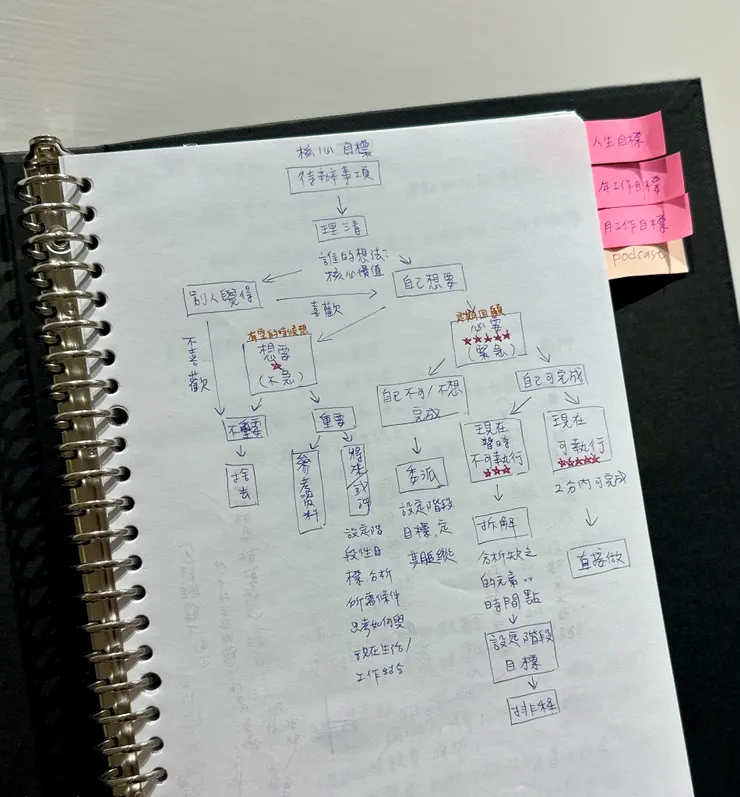 核心目標
待辦事項
理清
誰的想法?
核心價值
別人覺得
喜歡
自己想要
不喜歡
有空的時候想
想要
(不急)
定期回顧
必要
(緊急)
自己不可/不想
完成
自己可完成
不重要
重要
捨去
參考資料
將來/或許
設定階
段性目
標,分析
所需條件
思考如何與
現在生活/
工作結合
委派
設定階段
目標,定
期追蹤
現在
暫時
不可執行
拆解
分析缺乏
的元素or
時間點
設定階段
目標
排程
現在
可執行
2分內可完成
直接做
人生目標
年工作目標
月工作目標
podcast